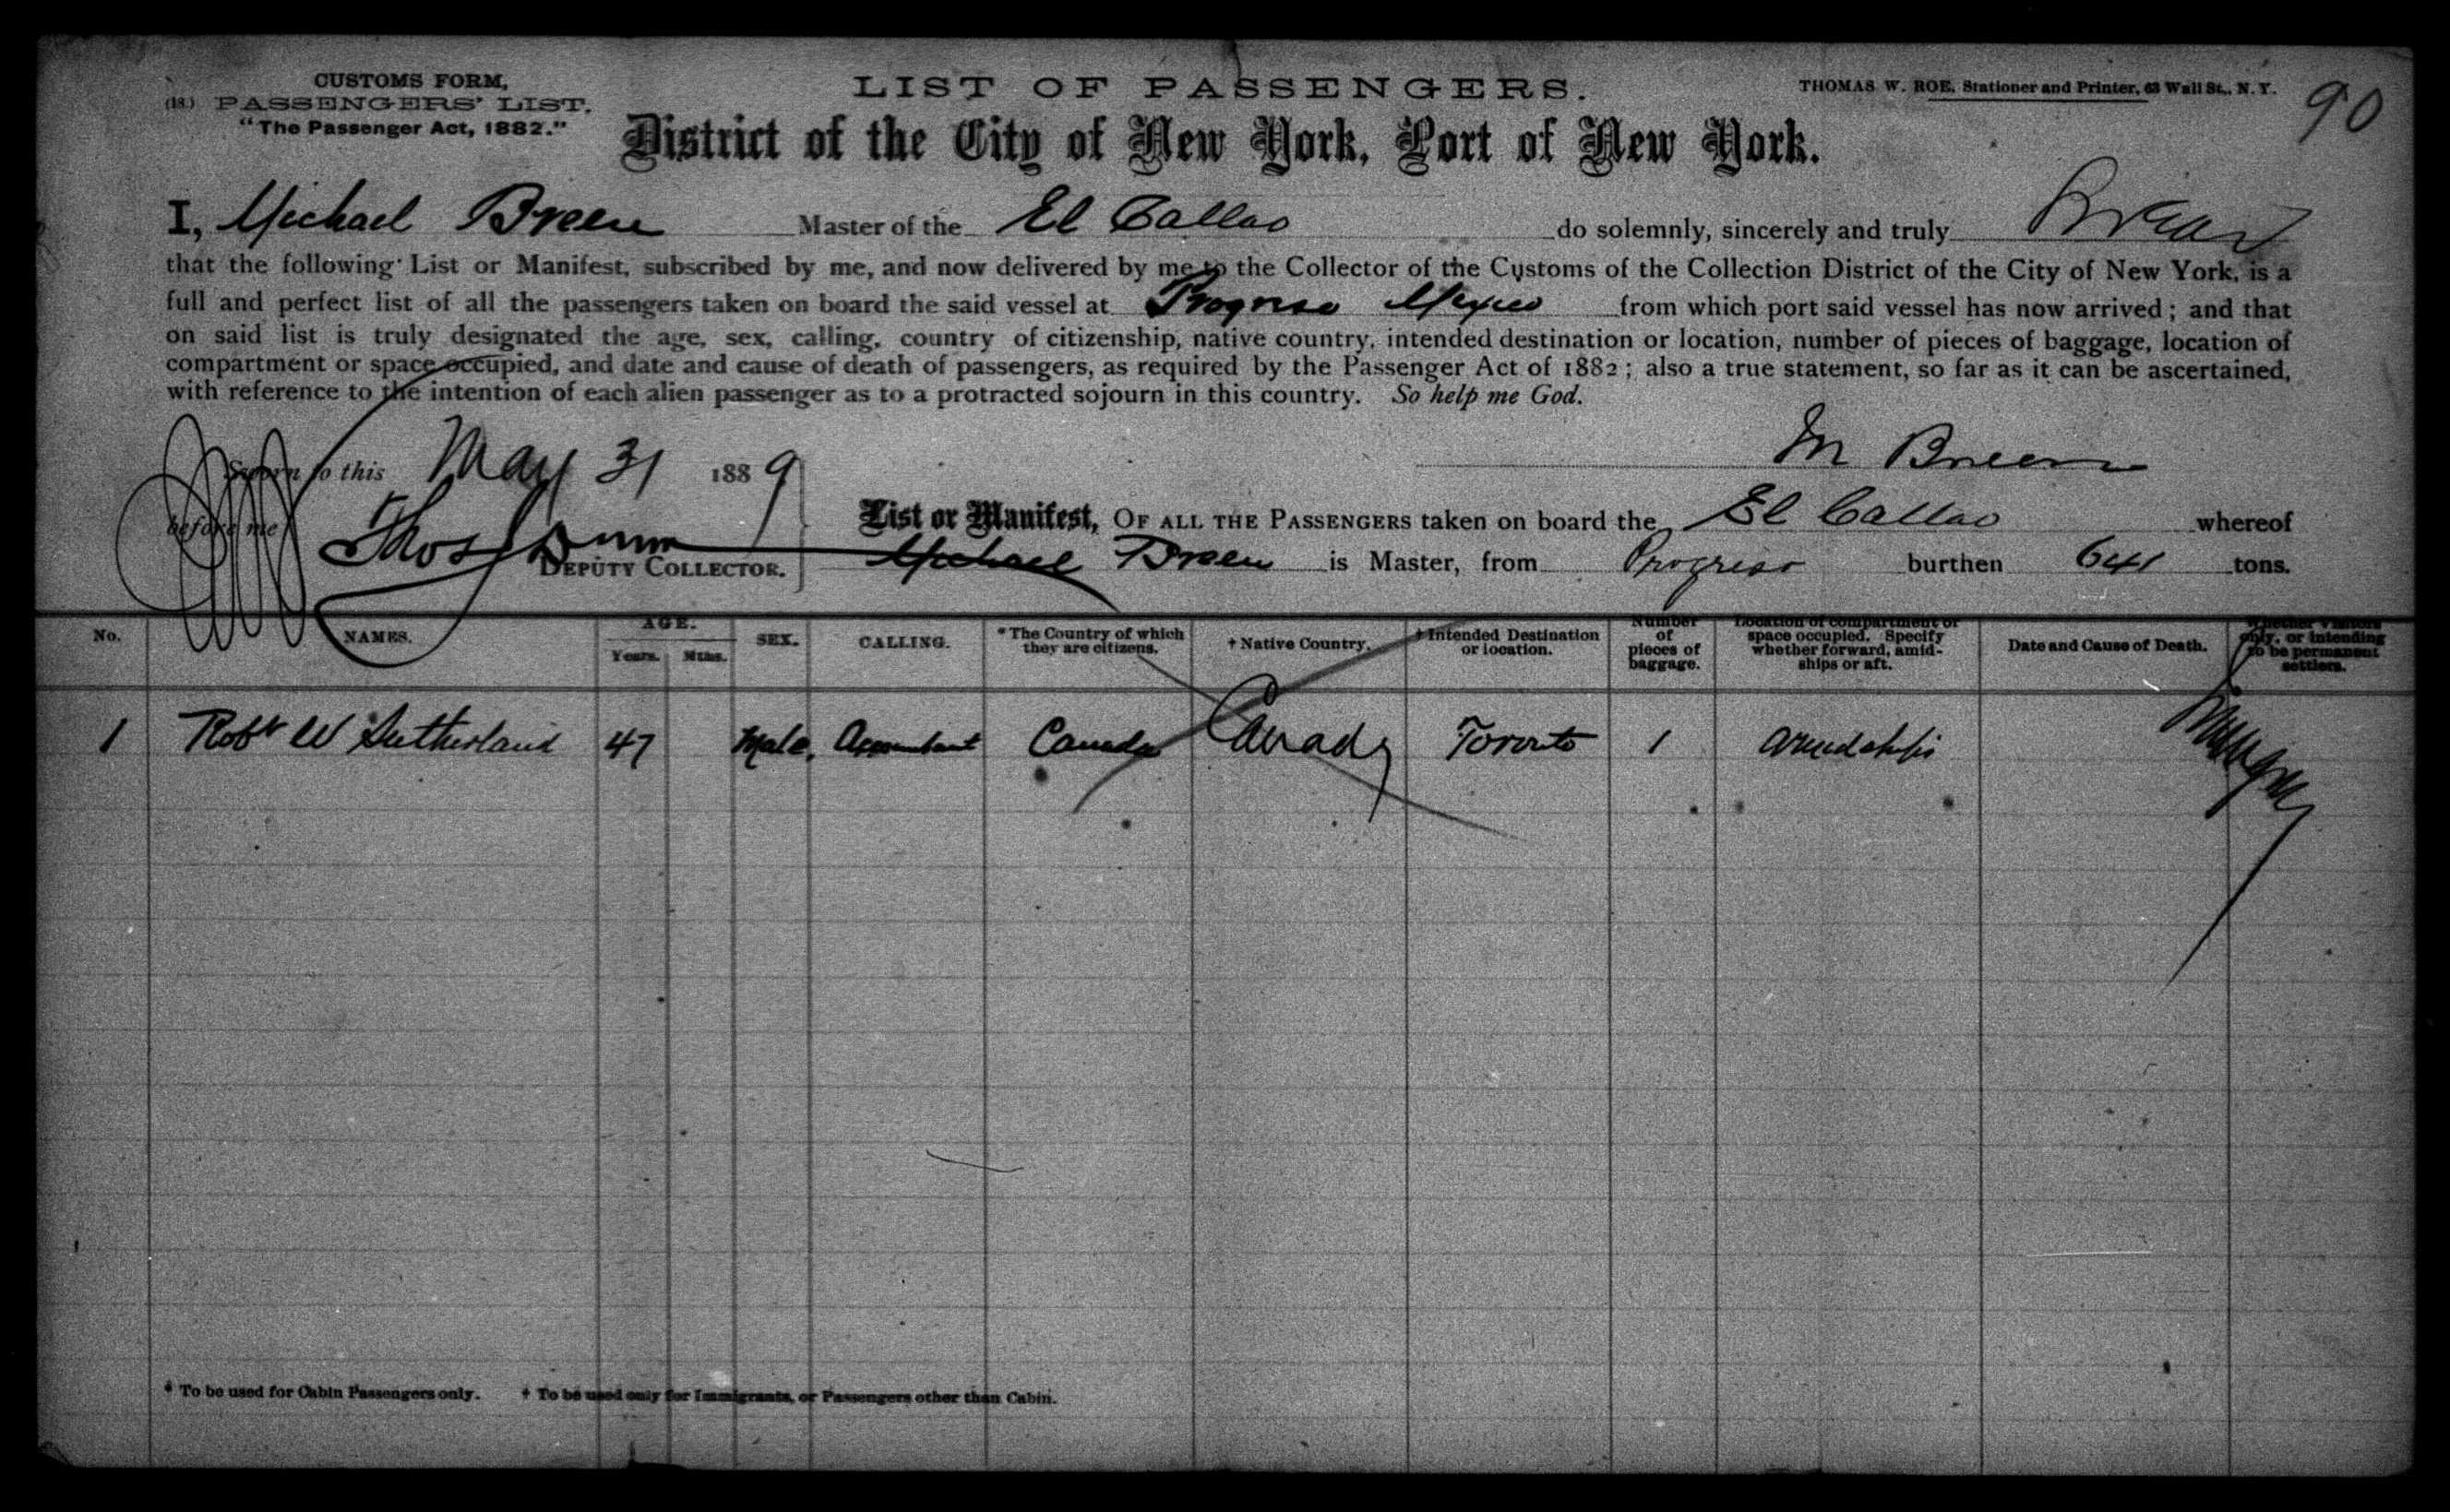 CUSTOMS FORM,
(18.) PASSENGERS' LIST.
"The Passenger Act, 1882."
LIST OF PASSENGERS.
THOMAS W. ROE, Stationer and Printer, 63 Wall St., N. Y.
90
District of the City of New York, Port of New York.
I, Michael Breen Master of the El Callao do solemnly, sincerely and truly Swear
that the following List or Manifest, subscribed by me, and now delivered by me to the Collector of the Customs of the Collection District of the City of New York, is a
full and perfect list of all the passengers taken on board the said vessel at Progreso Mexico from which port said vessel has now arrived; and that
on said list is truly designated the age, sex, calling, country of citizenship, native country, intended destination or location, number of pieces of baggage, location of
compartment or space occupied, and date and cause of death of passengers, as required by the Passenger Act of 1882; also a true statement, so far as it can be ascertained,
with reference to the intention of each alien passenger as to a protracted sojourn in this country. So help me God.
M Breen
Sworn to this May 31 1889
before me
Thos Dunn
DEPUTY COLLECTOR.
List or Manifest, OF ALL THE PASSENGERS taken on board the El Callao whereof
Michael Breen is Master, from Progreso burthen 641 tons.
No. NAMES. AGE. Years. Mths. SEX. CALLING. * The Country of which they are citizens. † Native Country. † Intended Destination or location. Number of pieces of baggage. Location of compartment or space occupied. Specify whether forward, amidships or aft. Date and Cause of Death. Whether visitors only, or intending to be permanent settlers.
1 Robt W Sutherland 47 Male, Accountant Canada Canada Toronto 1 Amidships
* To be used for Cabin Passengers only. † To be used only for Immigrants, or Passengers other than Cabin.